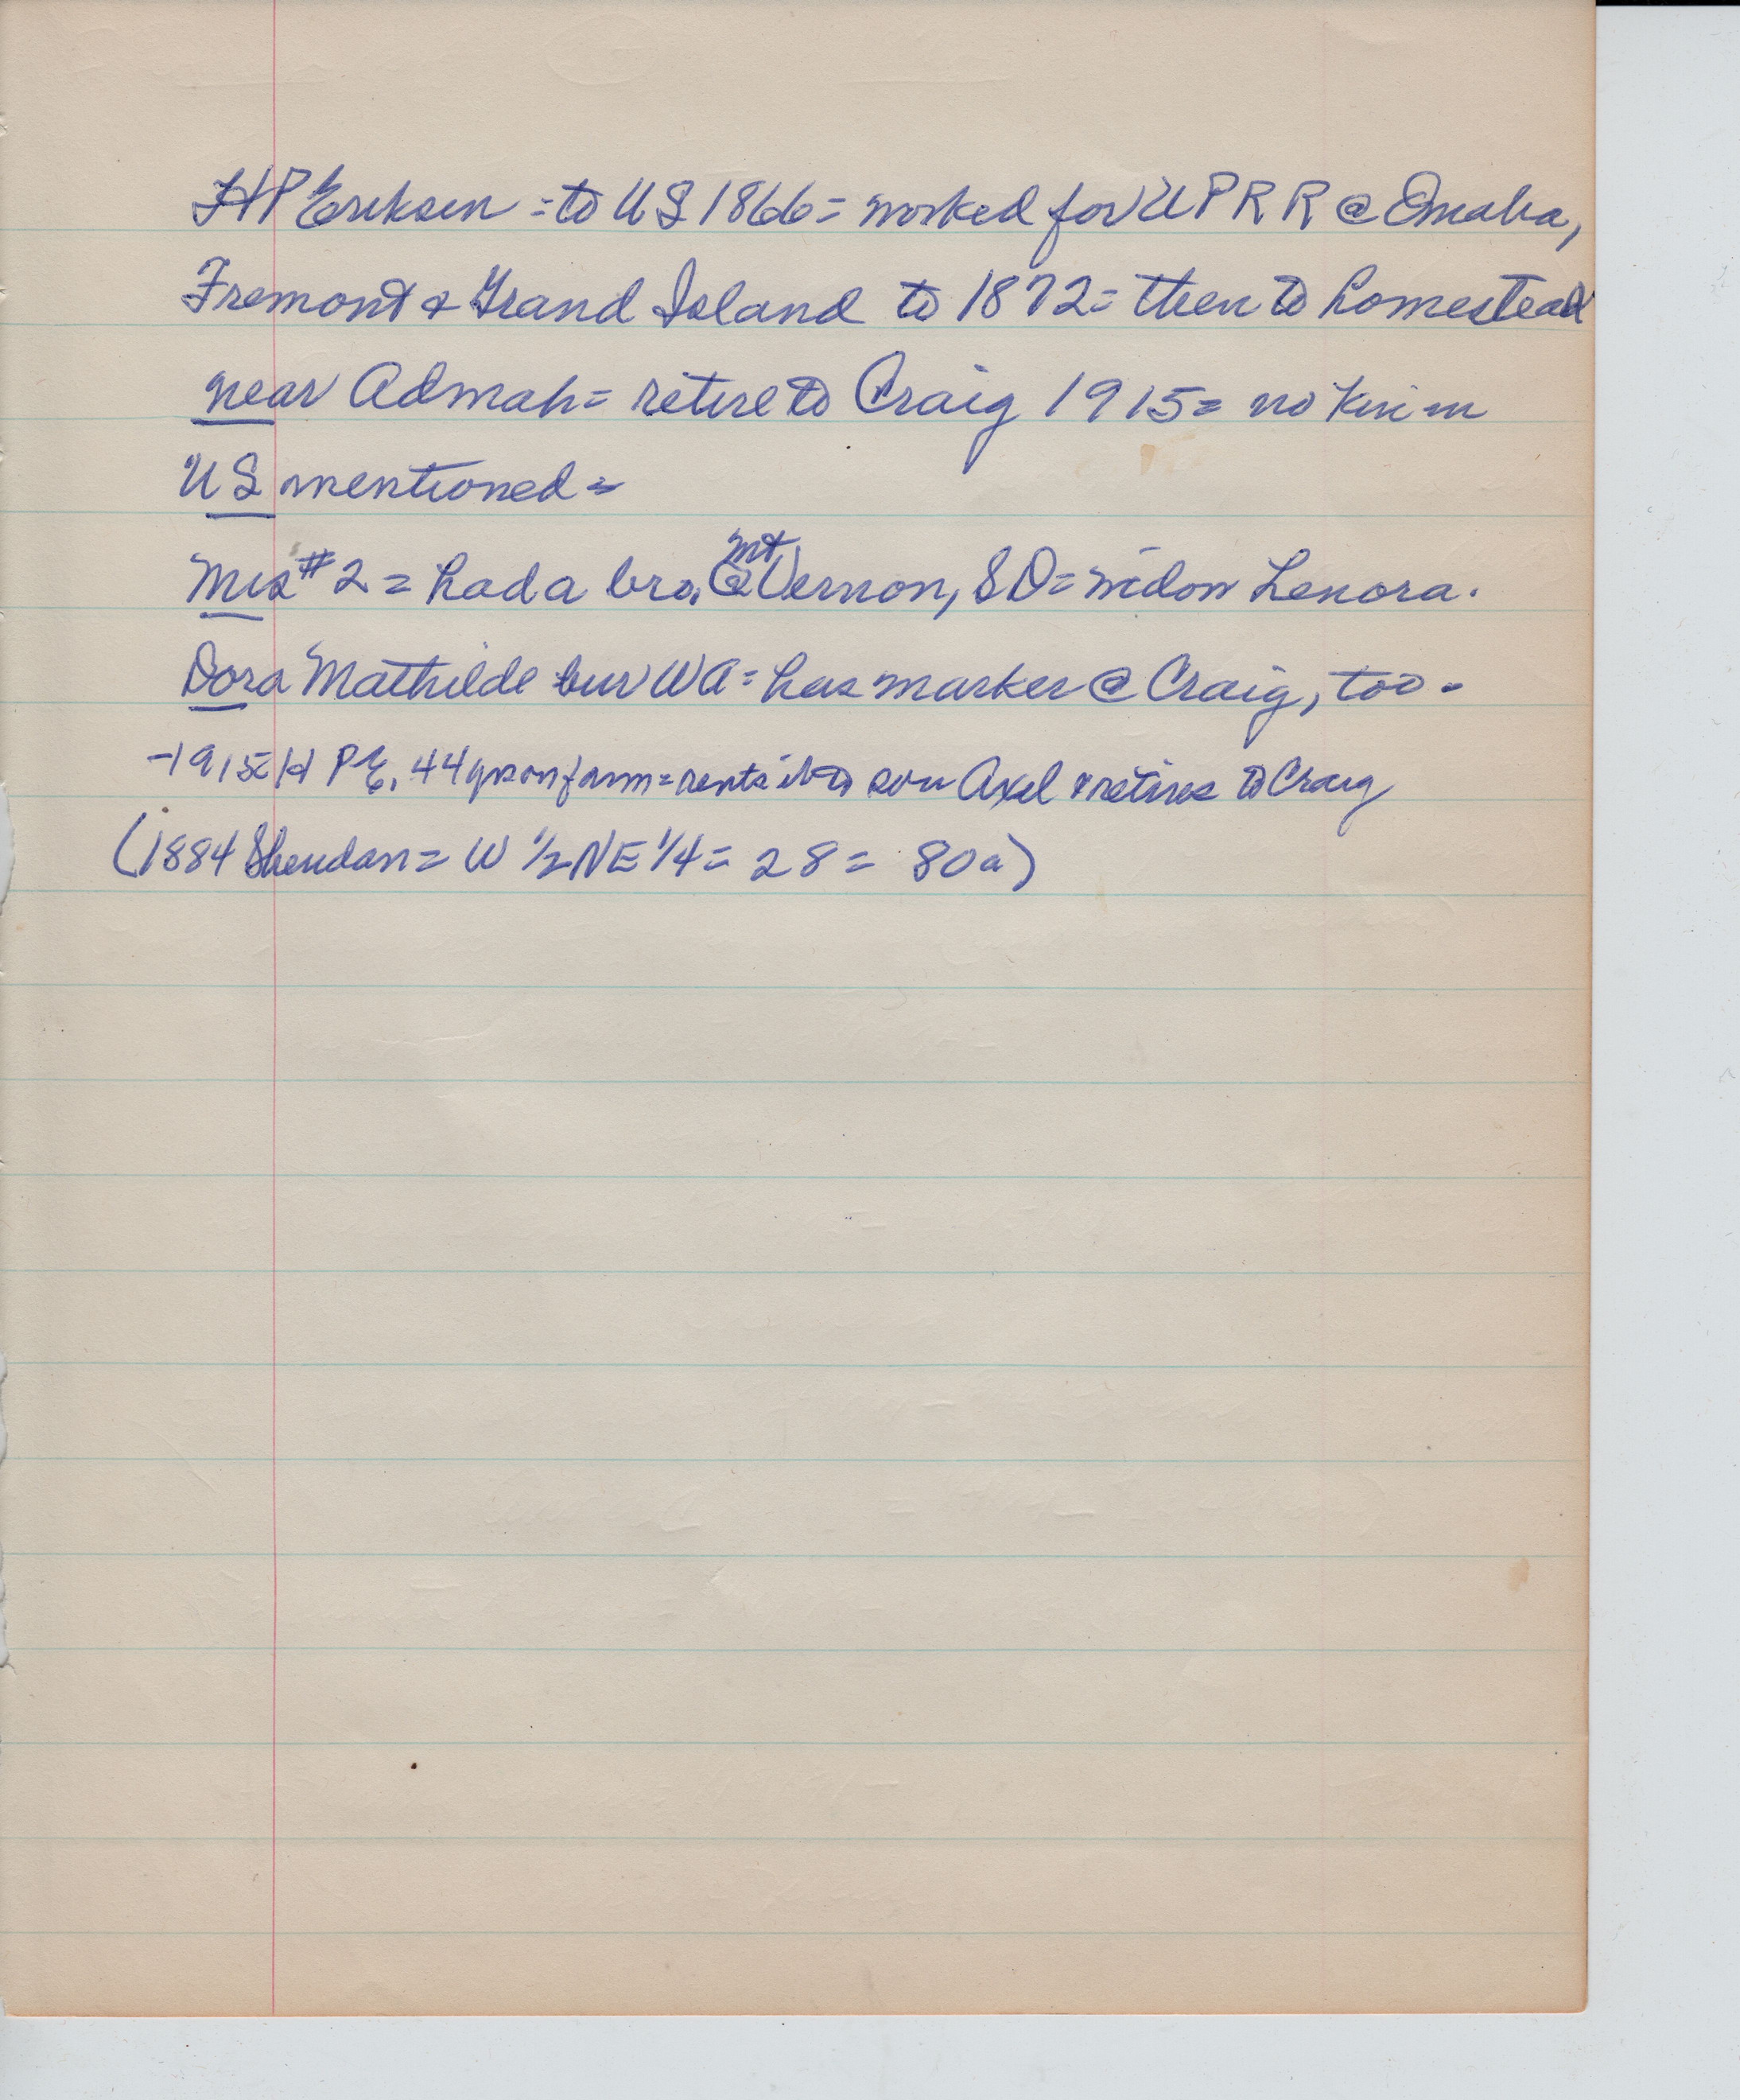 HP Eriksen = to US 1866 = worked for UPRR @ Omaha,
Fremont & Grand Island to 1872 = then to homestead
near Admah = retire to Craig 1915 = no kin in
US mentioned =
Mrs #2 = had a bro. @ Mt Vernon, SD = widow Lenora.
Dora Mathilde bur WA = has marker @ Craig, too -
-1915 = HPE, 44 yrs on farm = rents it to son Axel & retires to Craig
(1884 Sheridan = W 1/2 NE 1/4 = 28 = 80a)